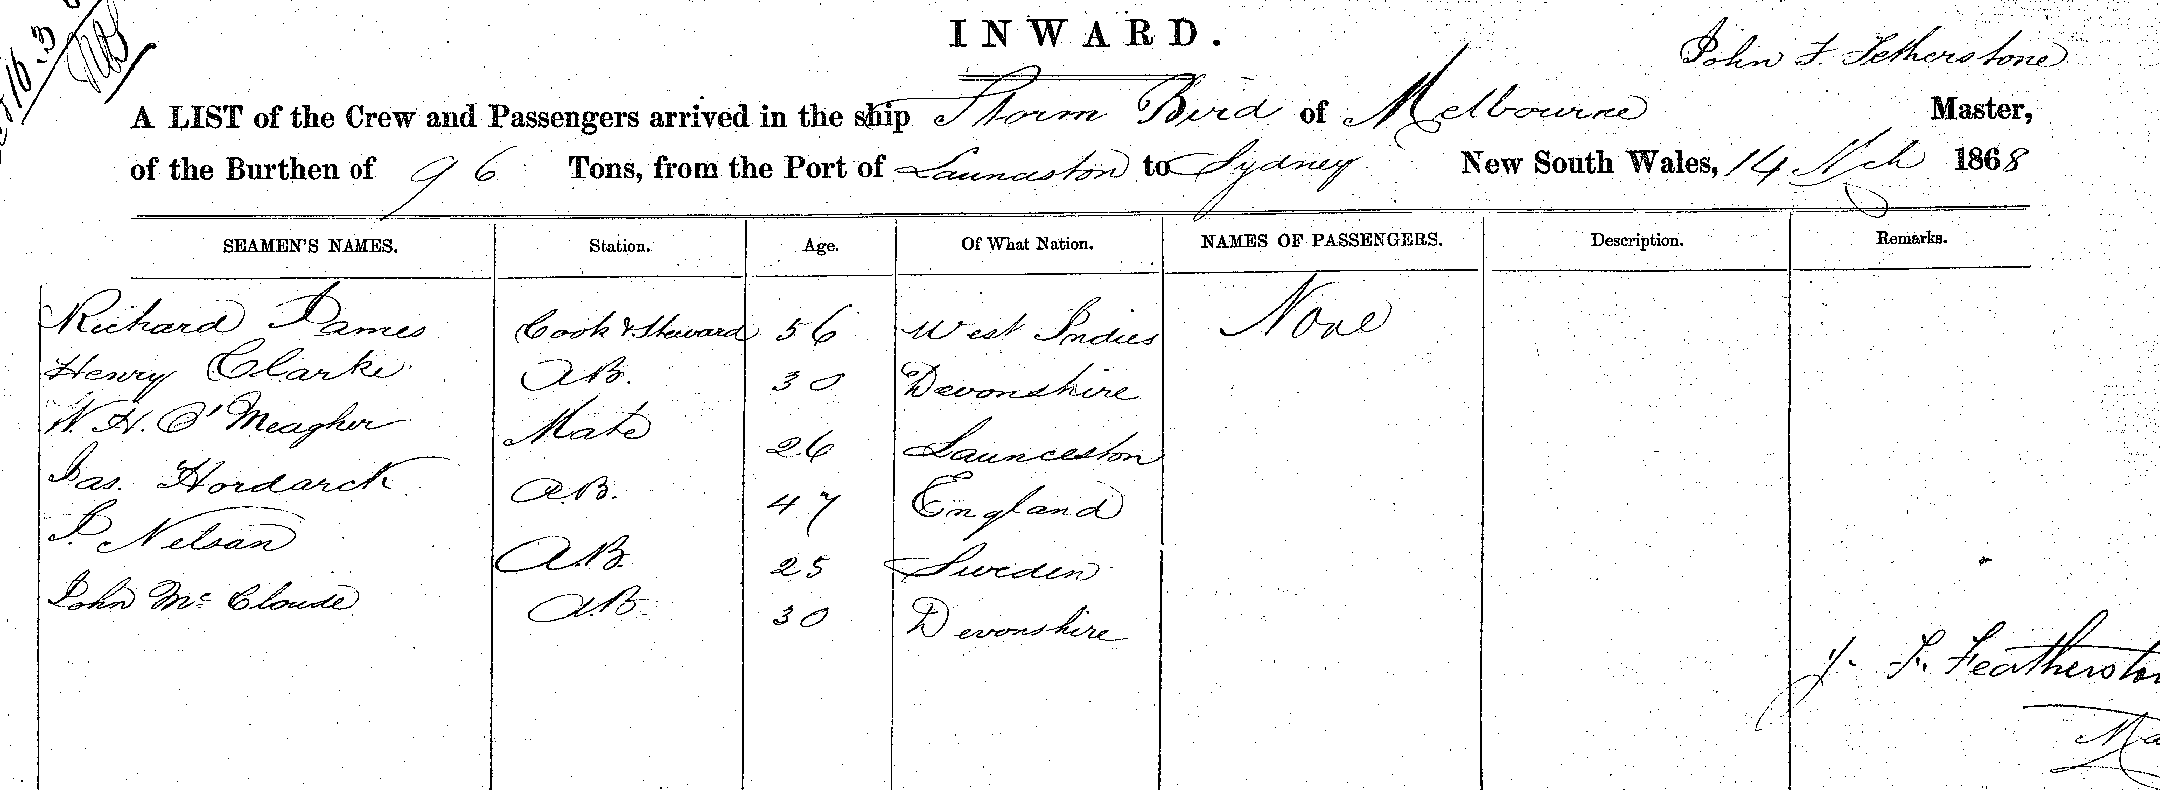 INWARD.
John F. Fetherstone
A LIST of the Crew and Passengers arrived in the ship Storm Bird of Melbourne Master,
of the Burthen of 96 Tons, from the Port of Launceston to Sydney New South Wales, 14 Mch 1868
SEAMEN'S NAMES. Station. Age. Of What Nation. NAMES OF PASSENGERS. Description. Remarks.
Richard James Cook & Steward 56 West Indies None
Henry Clarke AB. 30 Devonshire
W. H. O'Meagher Mate 26 Launceston
Jas. Hordarck AB. 47 England
P. Nelson A.B. 25 Sweden
John Mc Cloude A.B. 30 Devonshire
J. F. Featherston
Ma